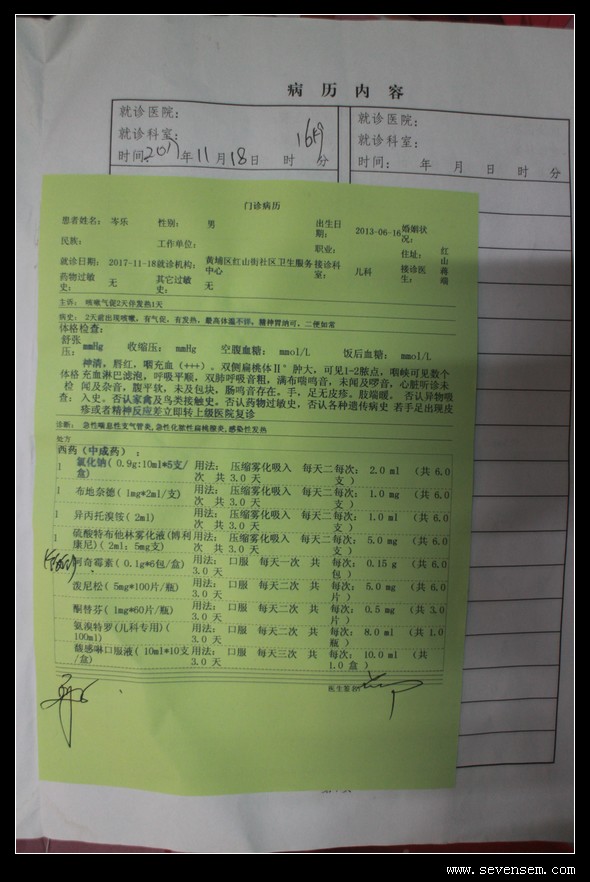 病 历 内 容
就诊医院:
就诊科室:
时间: 2017年11月18日 时 分
就诊医院:
就诊科室:
时间: 年 月 日 时 分
门诊病历
患者姓名: 岑乐 性别: 男 出生日期: 2013-06-16 婚姻状况:
民族: 工作单位: 职业: 住址: 红山
就诊日期: 2017-11-18 就诊机构: 黄埔区红山街社区卫生服务中心 接诊科室: 儿科 接诊医生: 蒋
药物过敏史: 无 其它过敏史: 无
主诉: 咳嗽气促2天伴发热1天
病史: 2天前出现咳嗽,有气促,有发热,最高体温不详,精神胃纳可,二便如常
体格检查:
舒张压: mmHg 收缩压: mmHg 空腹血糖: mmol/L 饭后血糖: mmol/L
神清,唇红,咽充血(+++),双侧扁桃体Ⅱ°肿大,可见1-2脓点,咽峡可见数个
体格 充血淋巴滤泡,呼吸平顺,双肺呼吸音粗,满布喘鸣音,未闻及啰音,心脏听诊未
检 闻及杂音,腹平软,未及包块,肠鸣音存在,手,足无皮疹。肢端暖。否认异物吸
查: 入史。否认家禽及鸟类接触史。否认药物过敏史,否认各种遗传病史 若手足出现皮
疹或者精神反应差立即转上级医院复诊
诊断: 急性喘息性支气管炎,急性化脓性扁桃腺炎,感染性发热
处方
西药(中成药):
1 氯化钠( 0.9g:10ml*5支/盒) 用法: 压缩雾化吸入 每天二次 共 3.0 天 每次: 2.0 ml (共 6.0 支 )
1 布地奈德( 1mg*2ml/支) 用法: 压缩雾化吸入 每天二次 共 3.0 天 每次: 1.0 mg (共 6.0 支 )
1 异丙托溴铵( 2ml) 用法: 压缩雾化吸入 每天二次 共 3.0 天 每次: 1.0 ml (共 6.0 支 )
1 硫酸特布他林雾化液(博利康尼)( 2ml: 5mg支) 用法: 压缩雾化吸入 每天二次 共 3.0 天 每次: 5.0 mg (共 6.0 支 )
阿奇霉素( 0.1g*6包/盒) 用法: 口服 每天一次 共 3.0 天 每次: 0.15 g (共 6.0 包 )
泼尼松( 5mg*100片/瓶) 用法: 口服 每天二次 共 3.0 天 每次: 5.0 mg (共 6.0 片 )
酮替芬( 1mg*60片/瓶) 用法: 口服 每天二次 共 3.0 天 每次: 0.5 mg (共 3.0 片 )
氨溴特罗(儿科专用)( 100ml) 用法: 口服 每天二次 共 3.0 天 每次: 8.0 ml (共 1.0 瓶 )
馥感啉口服液( 10ml*10支/盒) 用法: 口服 每天三次 共 3.0 天 每次: 10.0 ml (共 1.0 盒 )
医生签名:
www.sevensem.com